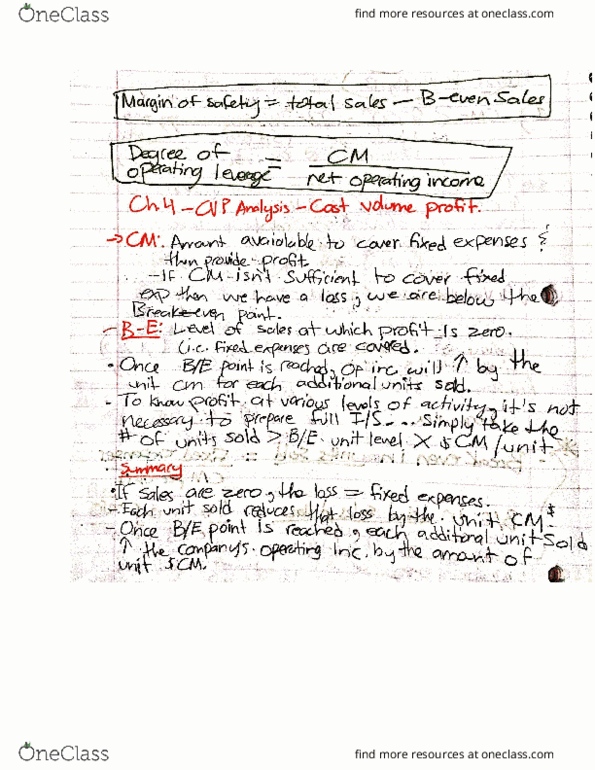 OneClass
find more resources at oneclass.com
Margin of safety = total sales - B-even Sales
Degree of operating leverage = CM / net operating income
Ch 4 - CVP Analysis - Cost volume profit.
→ CM: Amount avaiolable to cover fixed expenses &
then provide profit
- If CM isn't sufficient to cover fixed
exp then we have a loss, we are below the
Breakeven point.
- B-E: Level of sales at which profit is zero.
(i.e. fixed expenses are covered.
• Once B/E point is reached, op inc will ↑ by the
unit cm for each additional units sold.
- To know profit at various levels of activity, it's not
necessary to prepare full I/S.... Simply take the
# of units sold > B/E unit level X $ CM/unit
- Summary
• If sales are zero, the loss = fixed expenses.
- Each unit sold reduces that loss by the unit CM $
- Once B/E point is reached, each additional unit Sold
↑ the company's operating Inc. by the amount of
unit $CM.
OneClass
find more resources at oneclass.com